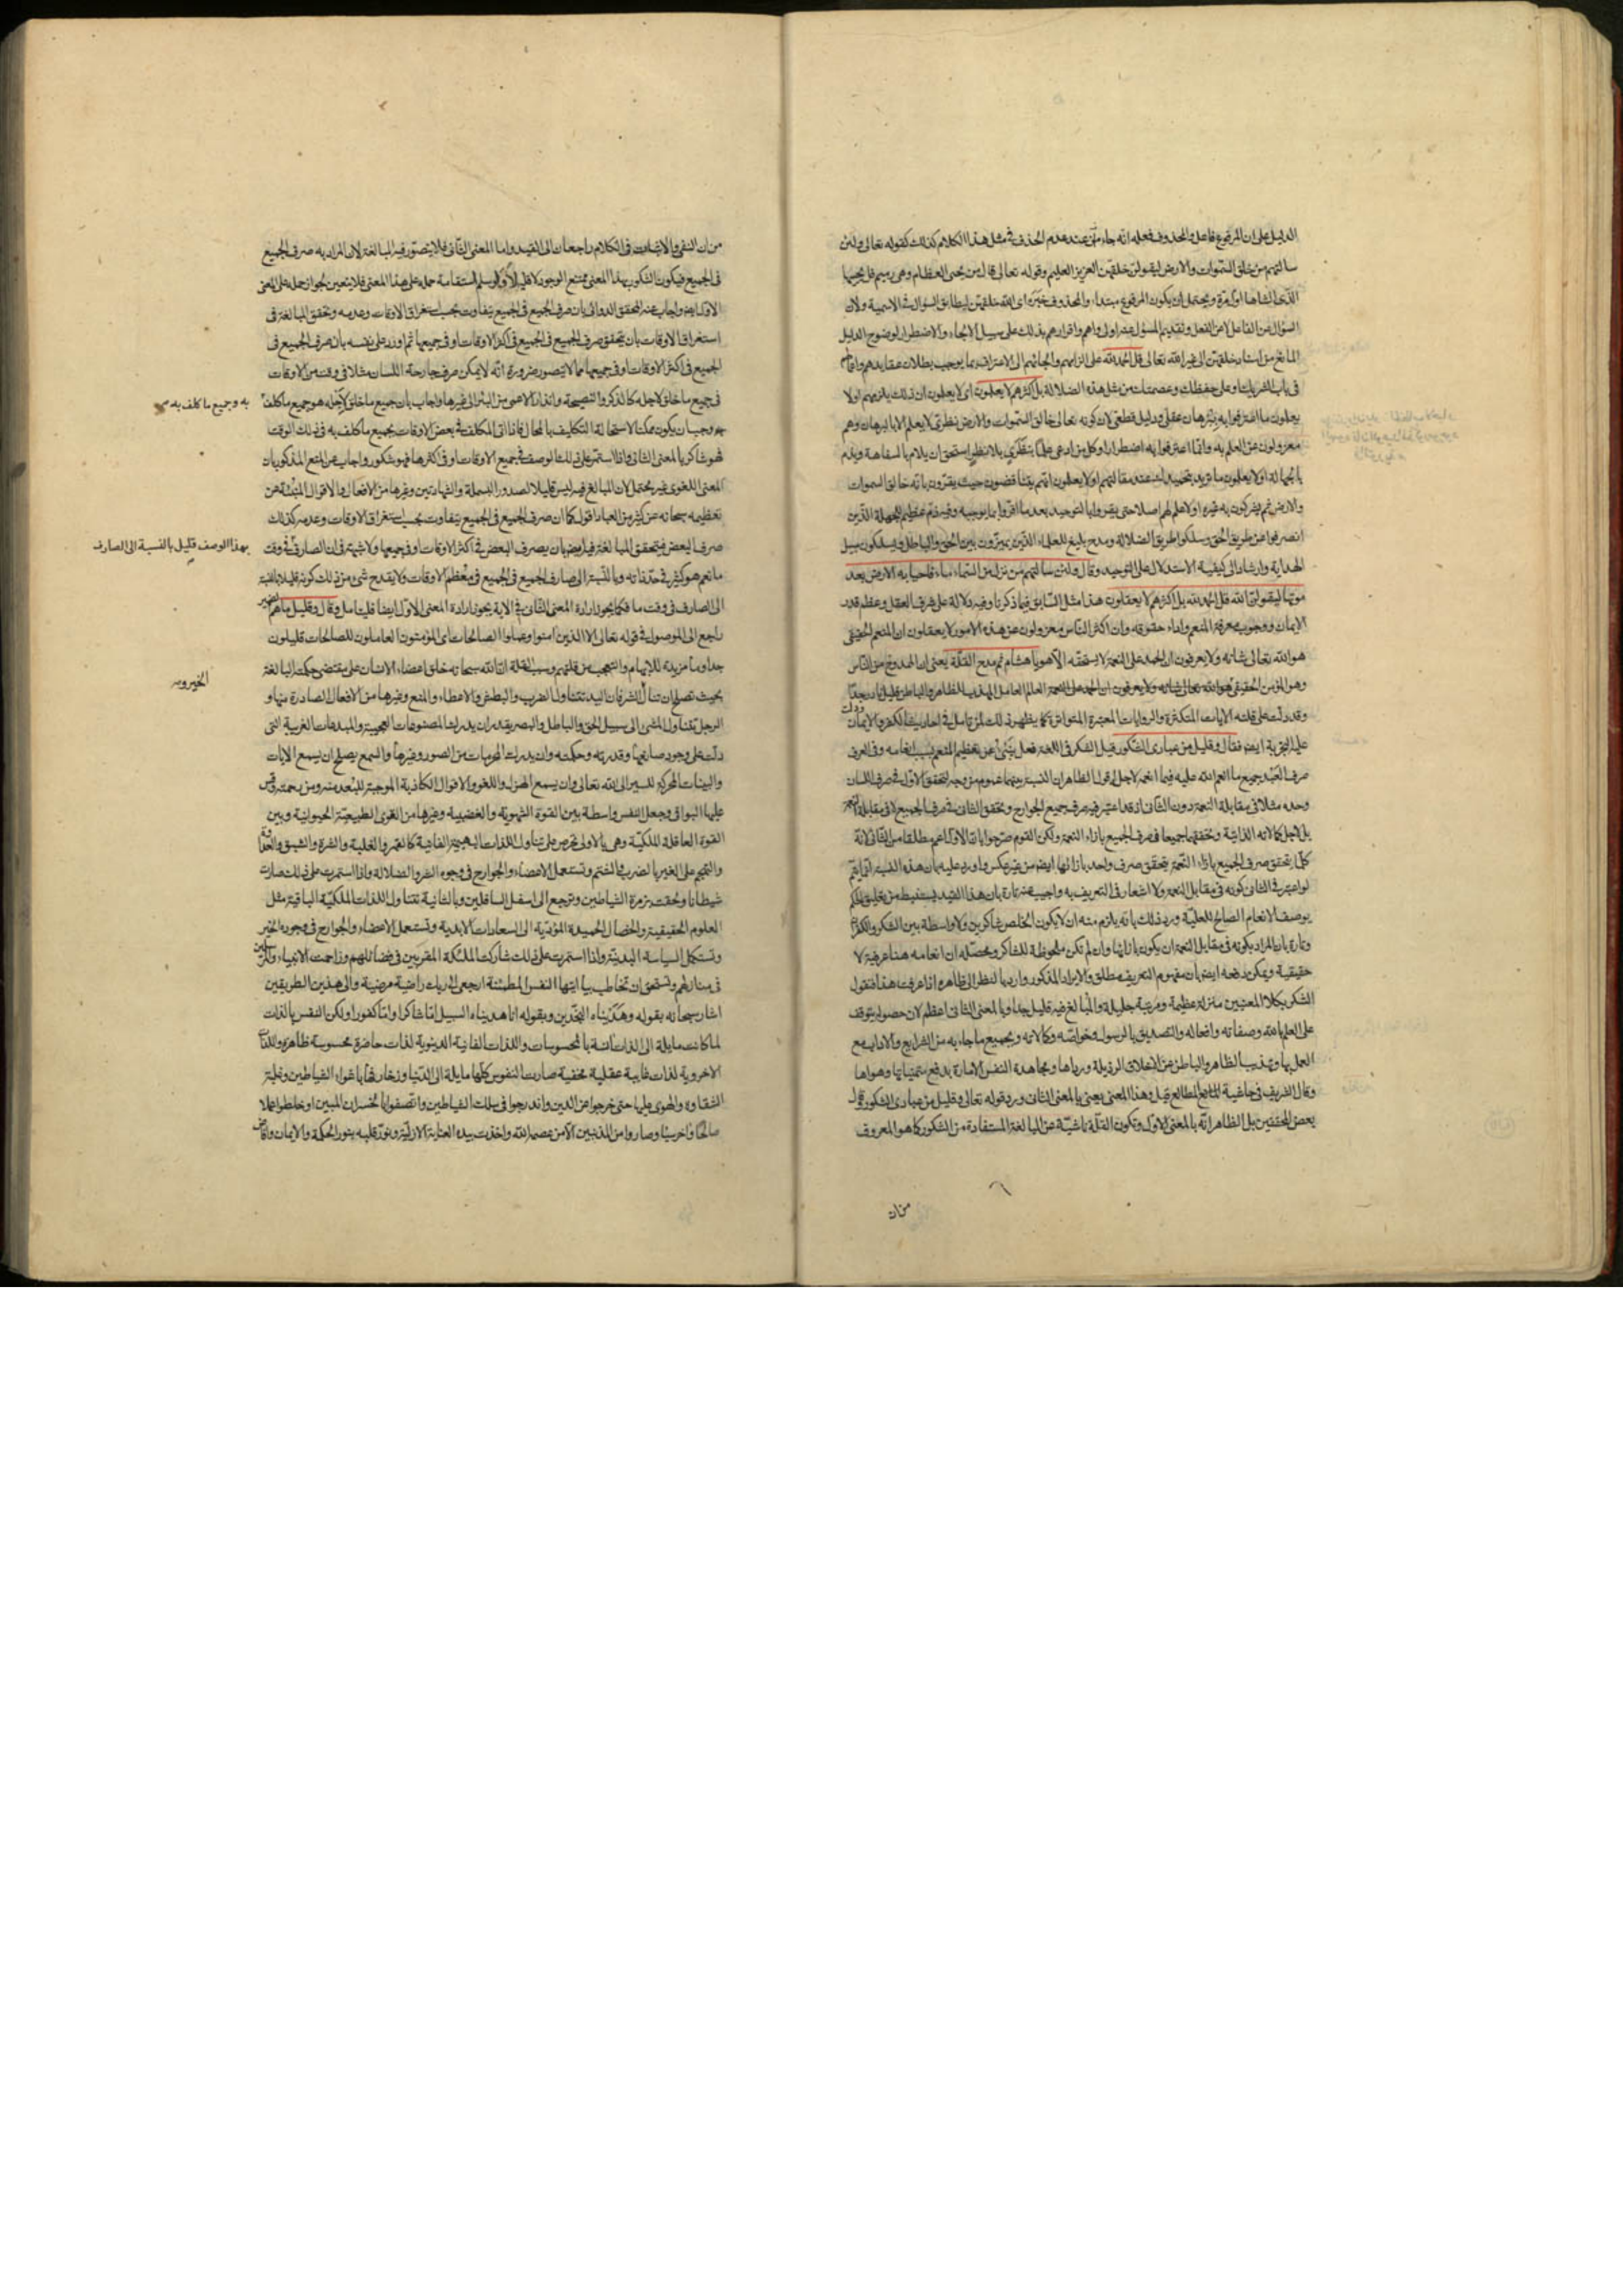 الدليل على ان المرفوع فاعل والمحذوف فعله انه جاء متى عند عدم الحذف في مثل هذا الكلام كذلك كقوله تعالى ولئن
سالتهم من خلق السموات والارض ليقولن خلقهن العزيز العليم وقوله تعالى قال من يحيى العظام وهي رميم قل يحييها
الذي انشاها اول مرة ويحتمل ان يكون المرفوع مبتداء والمحذوف خبره اى الله خلقهن ليطابق السؤال في الاسمية ولان
السؤال عن الفاعل لا عن الفعل وتقديم المسؤل عنه اولى واهم واقرارهم بذلك على سبيل الالجاء والاضطرار لوضوح الدليل
المانع من اسناد خلقهن الى غير الله تعالى قل الحمد لله على الزامهم والجائهم الى الاعتراف بما يوجب بطلان عقايدهم
في باب الشريك وعلى حفظك وعصمتك من مثل هذه الضلالة بل اكثرهم لا يعلمون اى لا يعلمون ان ذلك يلزمهم او لا
يعلمون ما اعترفوا به ببرهان عقلي ودليل قطعي لان كونه تعالى خالق السموات والارض نظرى لا يعلم الا بالبرهان وهم
معزولون عن العلم به وانما اعترفوا به اضطرارا وكل من ادعى علما بنظرى بلا نظر استحق ان يلام بالسفاهة ويذم
بالجهالة او لا يعلمون ما تريد بتحميدك عند مقالتهم او لا يعلمون انهم يتناقضون حيث يقرون بانه خالق السموات
والارض ثم يشركون به غيره او لا علم لهم اصلا حتى يقروا بالتوحيد بعد ما اقروا بما يوجبه وفيه ذم عظيم للجهلة الذين
انصرفوا عن طريق الحق وسلكوا طريق الضلالة ومدح بليغ للعلماء الذين يميزون بين الحق والباطل ويسلكون سبيل
الهداية وارشاد الى كيفية الاستدلال على التوحيد وقال ولئن سالتهم من نزل من السماء ماء فاحيا به الارض بعد
موتها ليقولن الله قل الحمد لله بل اكثرهم لا يعقلون هذا مثل السابق فيما ذكرنا وفيه دلالة على شرف العقل وعظم قدر
الايمان ووجوب معرفة المنعم واداء حقوقه وان اكثر الناس معزولون عن هذه الامور لا يعقلون ان المنعم الحقيقى
هو الله تعالى شانه ولا يعرفون ان الحمد على النعمة لا يستحقه الا هو يا هشام ثم مدح القلة يعنى ان الممدوح من الناس
وهو المؤمن الحقيقى العالم العامل المهذب الظاهر والباطن قليل نادر جدا
وقد دلت على قلته الايات المتكثرة والروايات المعتبرة المتواترة كما يظهر ذلك لمن تامل في احاديث الكفر والايمان
عليه التجربة ايضا فقال وقليل من عبادى الشكور قيل الشكر في اللغة فعل ينبئ عن تعظيم المنعم بسبب انعامه وفي العرف
صرف العبد جميع ما انعم الله عليه فيما خلق لاجله اقول الظاهر ان النسبة بينهما عموم من وجه لتحقق الاول في صرف اللسان
وحده مثلا في مقابلة النعمة دون الثانى اذ قد اعتبر فيه صرف جميع الجوارح وتحقق الثانى في صرف الجميع لا في مقابلة النعمة
بل لاجل كمالاته الذاتية وتحققهما جميعا في صرف الجميع بازاء النعمة ولكن القوم صرحوا بان الاول اعم مطلقا من الثانى لانه
كلما تحقق صرف الجميع بازاء النعمة تحقق صرف واحد بازائها ايضا من غير عكس واورد عليه بان هذه النسبة انما يتم
لو اعتبر في الثانى كونه في مقابل النعمة ولا اشعار في التعريف به واجيب عنه تارة بان هذا القيد يستنبط من تعليق الحكم
بوصف الانعام الصالح للعلية ورد ذلك بانه يلزم منه ان لا يكون الخلص شاكرين ولا واسطة بين الشكر والكفر
وتارة بان المراد بكونه في مقابل النعمة ان يكون بازائها وان لم تكن ملحوظة للشاكر ومحصله ان انعامه هنا عرفية لا
حقيقية ويمكن دفعه ايضا بان مفهوم التعريف مطلق والايراد المذكور وارد بالنظر الى ظاهره اذا عرفت هذا فنقول
الشكر بكلا المعنيين منزلة عظيمة ومرتبة جليلة والبالغ فيه قليل جدا وبالمعنى الثانى اعظم لان حصوله يتوقف
على العلم بالله وصفاته وافعاله والتصديق بالرسول وخواصه وكمالاته وبجميع ما جاء به من الشرايع والاداب مع
العمل بها وتهذيب الظاهر والباطن عن الاخلاق الرذيلة ورياها ومجاهدة النفس الامارة بدفع متمنياتها وهواها
وقال الشريف في حاشية المطالع قيل وهذا المعنى يعنى بالمعنى الثانى ورد قوله تعالى وقليل من عبادى الشكور قول
بعض المحققين بل الظاهر انه بالمعنى الاول وتكون القلة ناشية عن المبالغة المستفادة من الشكور كما هو المعروف
من ان
من ان النفى والاثبات في الكلام راجعان الى القيد واما المعنى الثانى فلا يتصور فيه المبالغة لان المراد به صرف الجميع
في الجميع فيكون الشكور بهذا المعنى ممتنع الوجود لا قليلا ولو سلم استقامة حمله على هذا المعنى فلا يتعين لجواز حمله على المعنى
الاول ايضا واجاب عنه المحقق الدوانى بان صرف الجميع في الجميع يتفاوت بحسب استغراق الاوقات وعدمه وتحقق المبالغة في
استغراق الاوقات بان يتحقق صرف الجميع في الجميع في اكثر الاوقات او في جميعها ثم اورد على نفسه بان صرف الجميع في
الجميع في اكثر الاوقات او في جميعها مما لا يتصور ضرورة انه لا يمكن صرف جارحة اللسان مثلا في وقت من الاوقات
في جميع ما خلق لاجله كالذكر والنصيحة وانذار الاعمى من البئر الى غيرها واجاب بان جميع ما خلق لاجله هو جميع ما كلف
به وجميع ما كلف به
وجب ان يكون ممكنا لاستحالة التكليف بالمحال فاذا اتى المكلف في بعض الاوقات بجميع ما كلف به في ذلك الوقت
فهو شاكر بالمعنى الثانى واذا استمر على ذلك الوصف في جميع الاوقات او في اكثرها فهو شكور واجاب عن المنع المذكور بان
المعنى اللغوى غير محتمل لان المبالغ فيه ليس قليلا لصدور البسملة والشهادتين وغيرها من الافعال والاقوال المنبئة عن
تعظيمه سبحانه عن كثير من العباد اقول كما ان صرف الجميع في الجميع يتفاوت بحسب استغراق الاوقات وعدمه كذلك
صرف البعض فيتحقق المبالغة فيه ايضا بان يصرف البعض في اكثر الاوقات او في جميعها ولا شبهة في ان الصارف في وقت
بهذا الوصف قليل بالنسبة الى الصارف
ما نعم هو كثير في حد ذاته وبالنسبة الى صارف الجميع في الجميع في معظم الاوقات ولا يقدح شئ من ذلك كونه قليلا بالنسبة
الى الصارف في وقت ما فكما يجوز ارادة المعنى الثانى في الاية يجوز ارادة المعنى الاول ايضا فليتامل وقال وقليل ما هم الضمير
راجع الى الموصول في قوله تعالى الا الذين امنوا وعملوا الصالحات اى المؤمنون العاملون للصالحات قليلون
جدا وما مزيدة للابهام والتعجب من قلتهم وسبب القلة ان الله سبحانه خلق اعضاء الانسان على مقتضى حكمته البالغة
بحيث تصلح ان تنال الشر فان اليد تتناول الضرب والبطش والاعطاء والمنع وغيرها من الافعال الصادرة منها و
الخير و
الرجل يتناول المشى الى سبيل الحق والباطل والبصر يقدر ان يدرك المصنوعات العجيبة والمبدعات الغريبة التى
دلت على وجود صانعها وقدرته وحكمته وان يدرك المحرمات من الصور وغيرها والسمع يصلح ان يسمع الايات
والبينات المحركة للسير الى الله تعالى وان يسمع الهزل واللغو والاقوال الكاذبة الموجبة للبعد منه ومن رحمته وقس
عليها البواقى وجعل النفس واسطة بين القوة الشهوية والغضبية وغيرها من القوى الطبيعية الحيوانية وبين
القوة العاقلة الملكية وهى بالاولى تحرص على تناول اللذات البهيمية الفانية كالقهر والغلبة والشره والشبق
والتهجم على الغير بالضرب والشتم وتستعمل الاعضاء والجوارح في وجوه الشر والضلالة واذا استمرت على ذلك صارت
شيطانا ولحقت بزمرة الشياطين وترجع الى اسفل السافلين وبالثانية تتناول اللذات الملكية الباقية مثل
العلوم الحقيقية والخصال الحميدة المؤدية الى السعادات الابدية وتستعمل الاعضاء والجوارح في وجوه الخير
وتستكمل السياسة البدنية واذا استمرت على ذلك شاركت الملئكة المقربين في فضائلهم وزاحمت الانبياء والمرسلين
في منازلهم وتستحق ان تخاطب بيا ايتها النفس المطمئنة ارجعى الى ربك راضية مرضية والى هذين الطريقين
اشار سبحانه بقوله وهديناه النجدين وبقوله انا هديناه السبيل اما شاكرا واما كفورا ولكن النفس بالذات
لما كانت مايلة الى الذات انسة بالمحسوسات واللذات الفانية الدنيوية لذات حاضرة محسوسة ظاهرة واللذات
الاخروية لذات غايبة عقلية مخفية صارت النفوس كلها مايلة الى الدنيا وزخارفها باغواء الشياطين وغلبة
الشقاوة والهوى عليها حتى خرجوا عن الدين واندرجوا في سلك الشياطين واتصفوا بالخسران المبين او خلطوا عملا
صالحا واخر سيئا وصاروا من المذنبين الا من عصمه الله واخذت بيده العناية الازلية ونور قلبه بنور الحكمة والايمان